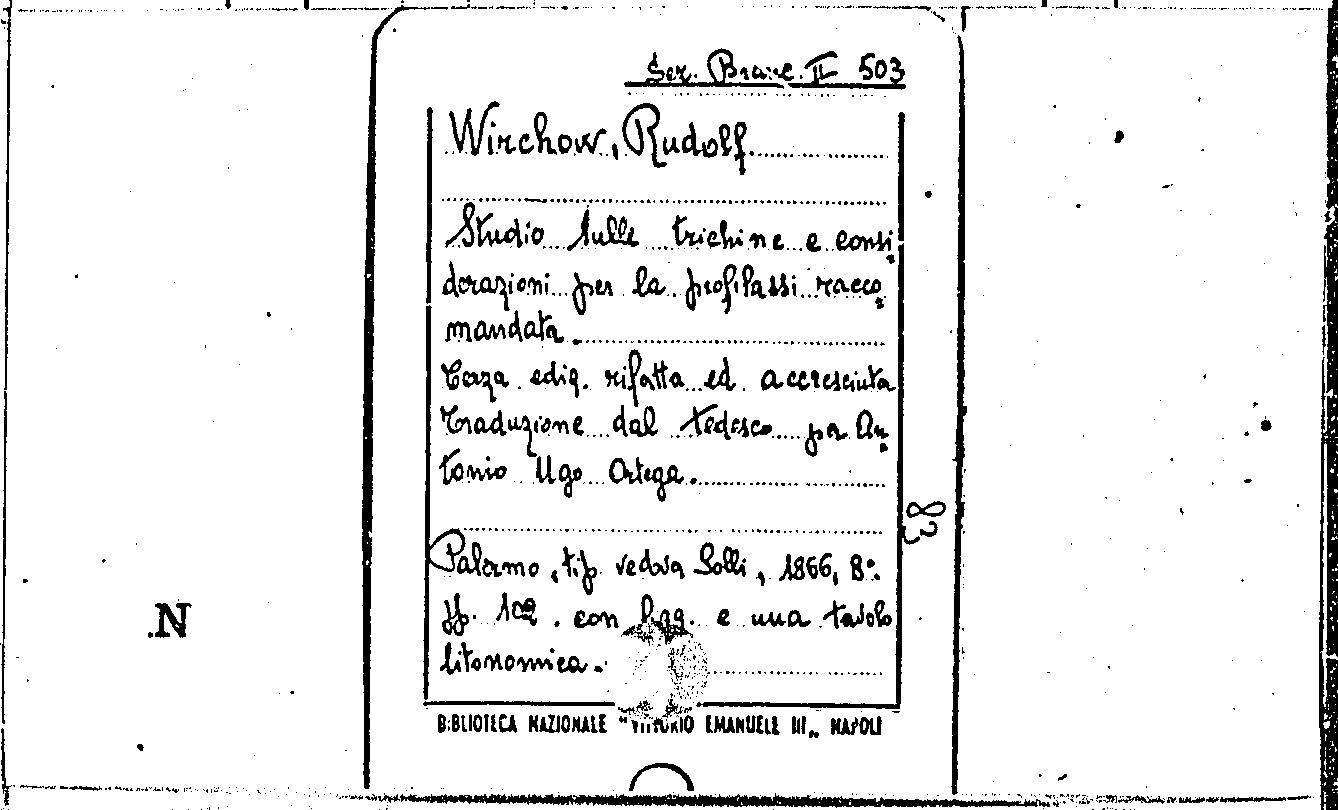 Ser. Branc. II 503
Wirchow, Rudolf.
Studio sulle trichine e consi
derazioni per la profilassi racco
mandata.
Terza ediz. rifatta ed accresciuta
Traduzione dal tedesco per An
tonio Ugo Ortega.
83
Palermo, tip. vedova Solli, 1866, 8°.
pp. 102. con e una tavola
litonomica.
.N
BIBLIOTECA NAZIONALE "VITTORIO EMANUELE III„ NAPOLI